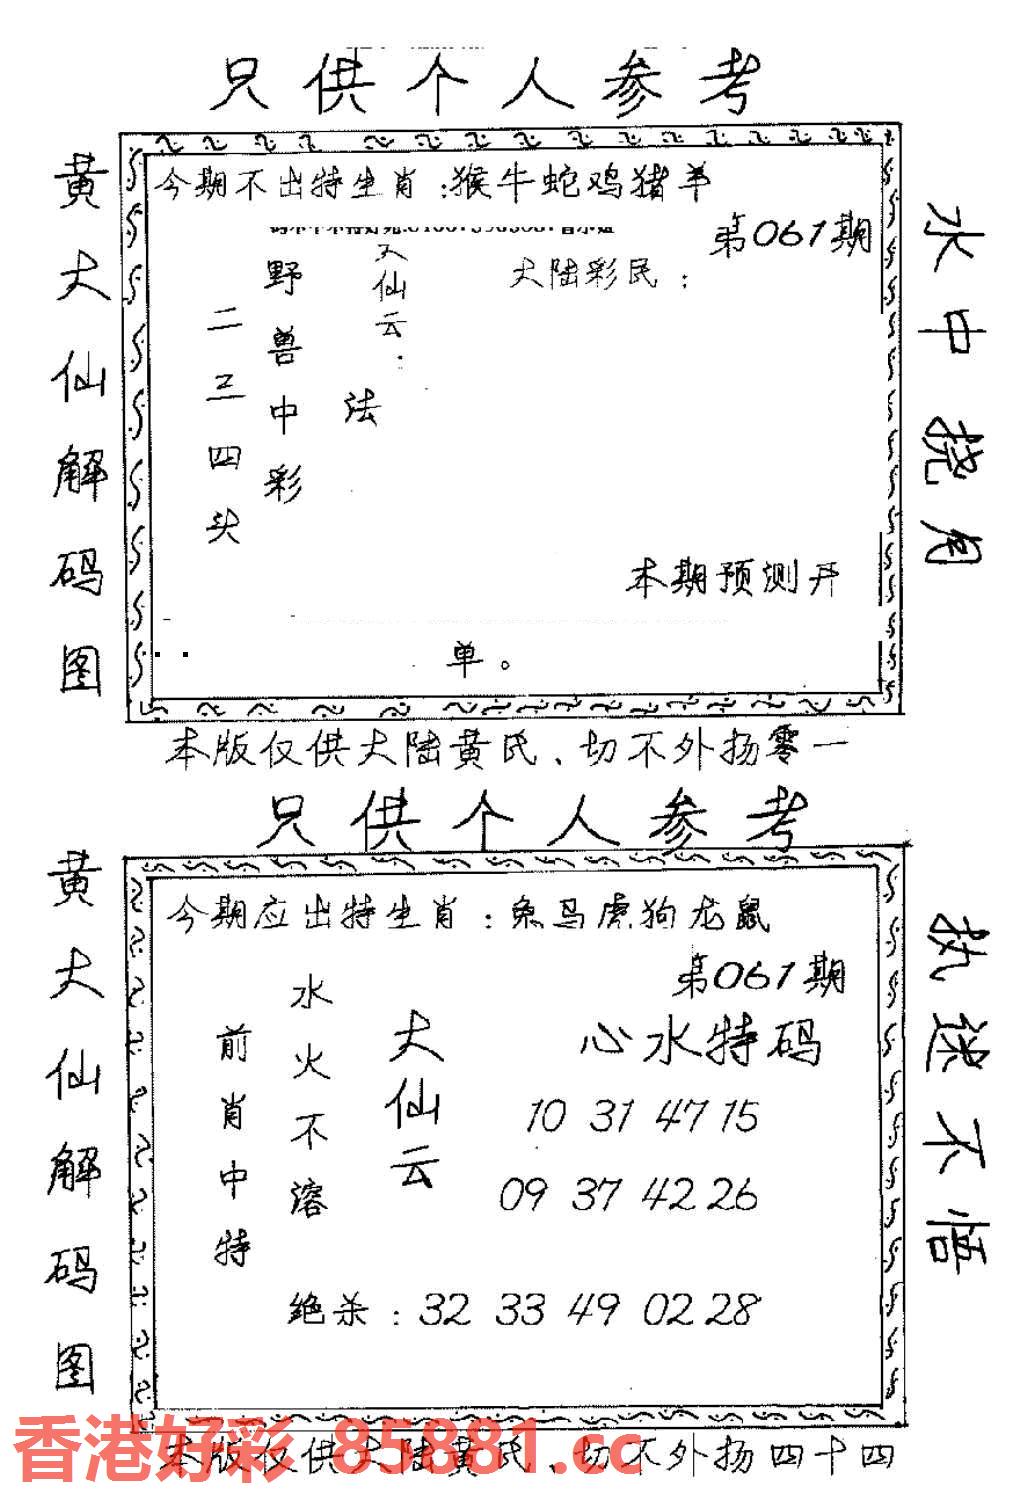 只供个人参考
黄大仙解码图
今期不出特生肖:猴牛蛇鸡猪羊
第061期
大陆彩民:
大仙云:
法
野兽中彩
二三四头
本期预测开
单。
水中捞月
本版仅供大陆黄氏、切不外扬零一
只供个人参考
黄大仙解码图
今期应出特生肖:兔马虎狗龙鼠
第061期
心水特码
大仙云
水火不溶
前肖中特
10 31 47 15
09 37 42 26
绝杀:32 33 49 02 28
执迷不悟
本版仅供大陆黄氏、切不外扬四十四
香港好彩 85881.cc